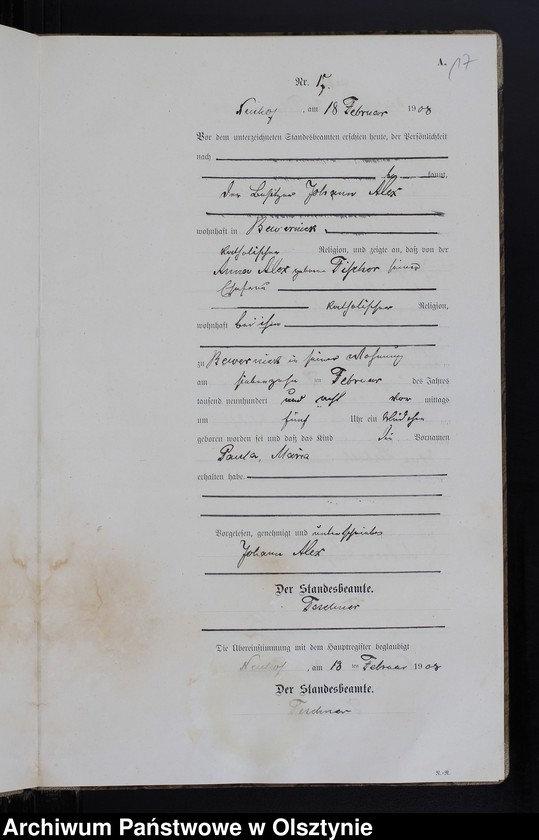 A.
17
Nr. 17.
Neuhof, am 18 Februar 1908
Vor dem unterzeichneten Standesbeamten erschien heute, der Persönlichkeit
nach
be kannt,
der Besitzer Johann Alex
wohnhaft in Bewernick
katholischer Religion, und zeigte an, daß von der
Anna Alex geborene Tischer seiner
Ehefrau
katholischer Religion,
wohnhaft bei ihm
zu Bewernick in seiner Wohnung
am siebenzehn ten Februar des Jahres
tausend neunhundert und acht vor mittags
um fünf Uhr ein Mädchen
geboren worden sei und daß das Kind die Vornamen
Paula, Maria
erhalten habe.
Vorgelesen, genehmigt und unterschrieben
Johann Alex
Der Standesbeamte.
Teschner
Die Übereinstimmung mit dem Hauptregister beglaubigt
Neuhof, am 18 ten Februar 1908
Der Standesbeamte.
Teschner
Archiwum Państwowe w Olsztynie